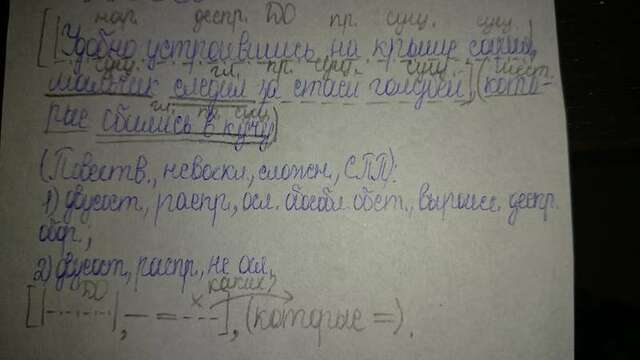 нар. деепр. ДО пр. сущ. сущ.
[|Удобно устроившись на крыше сарая|,
сущ. гл. пр. сущ. сущ. мест.
мальчик следил за стаей голубей], (кото-
гл. пр. сущ.
рые сбились в кучу)
(Повеств., невоскл., сложн., СПП):
1) двусост., распр., осл. обособл. обст., выраж. деепр.
обор.;
2) двусост, распр., не осл.
ДО каких?
[|-.-.-.-|, — = - - -], (которые =).